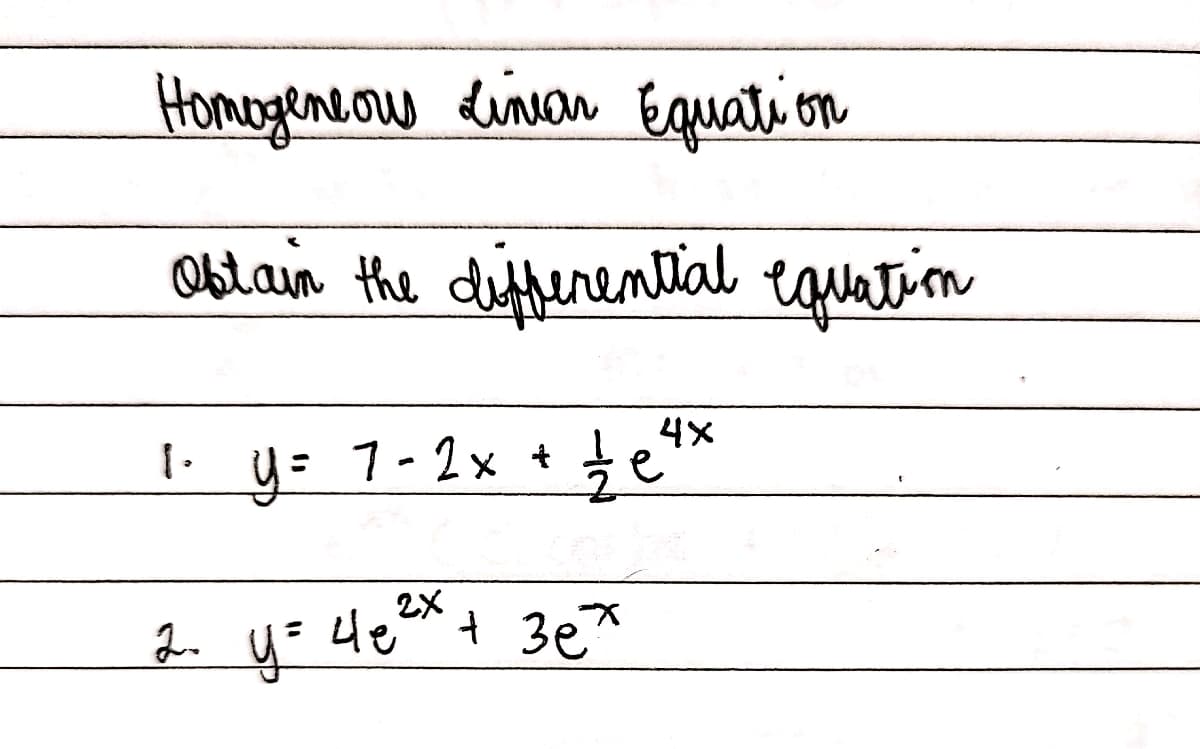 Homogeneous Linear Equation
Obtain the differential equation
1. y = 7 - 2x + 1/2 e^4x
2. y = 4e^2x + 3e^-x